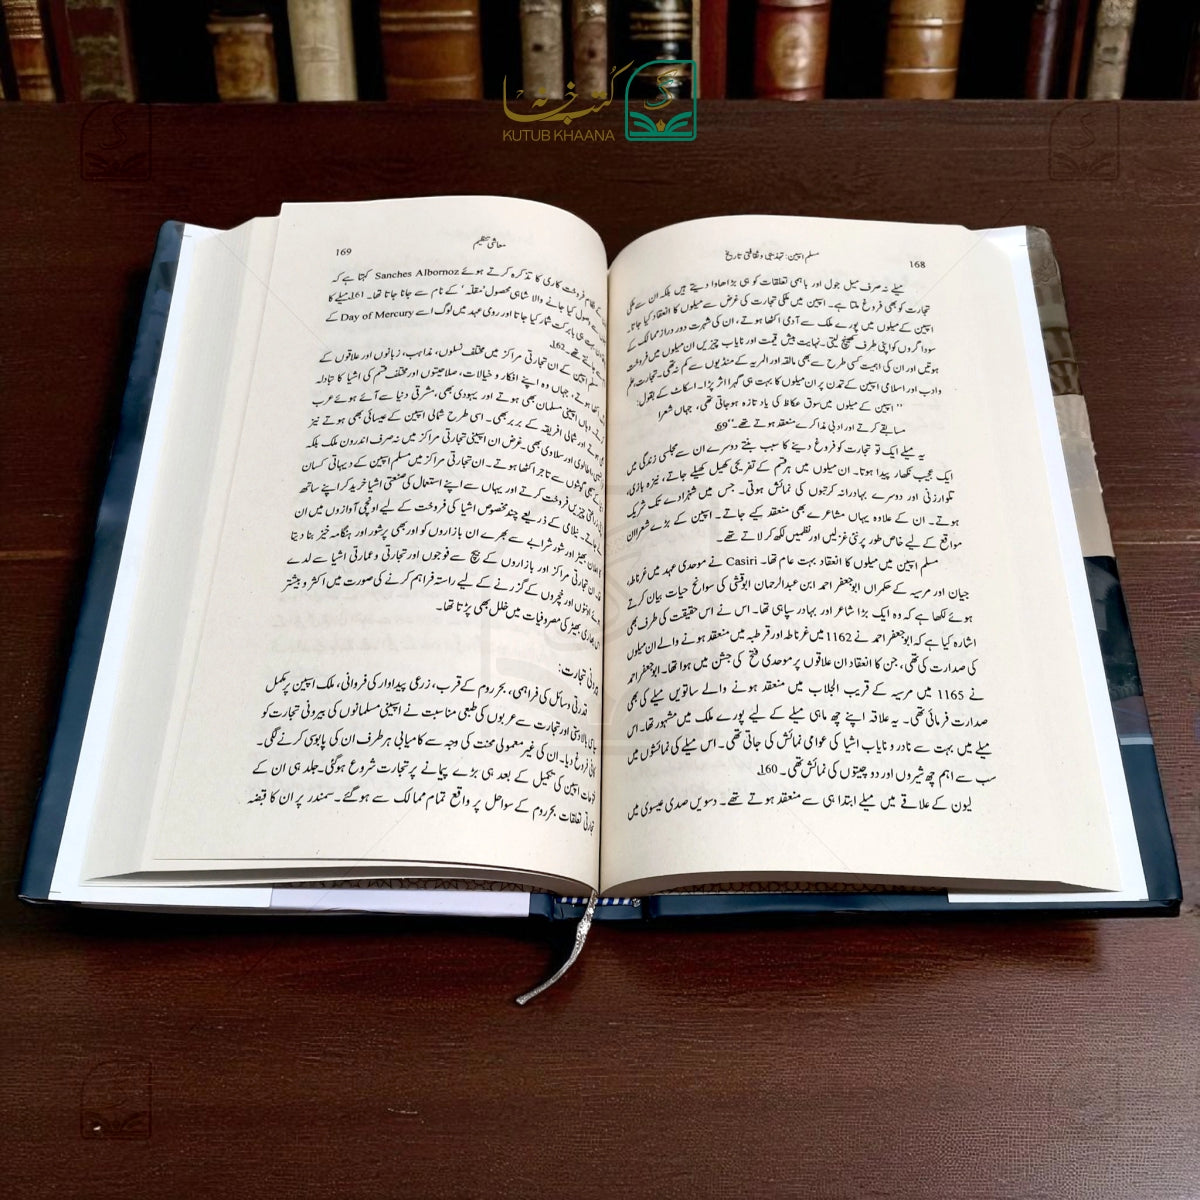 کتب خانہ
KUTUB KHAANA
168
مسلم اسپین: تہذیبی و ثقافتی تاریخ
میلے نہ صرف میل جول اور باہمی تعلقات کو ہی بڑھاوا دیتے ہیں بلکہ ان سے ملکی
تجارت کو بھی فروغ ملتا ہے۔ اسپین میں ملکی تجارت کی غرض سے میلوں کا انعقاد کیا جاتا۔
اسپین کے میلوں میں پورے ملک سے آدمی اکٹھا ہوتے، ان کی شہرت دور دراز ممالک کے
سوداگروں کو اپنی طرف کھینچ لیتی۔ نہایت بیش قیمت اور نایاب چیزیں ان میلوں میں فروخت
ہوتیں اور ان کی اہمیت کسی طرح سے بھی مالقہ اور المریہ کے منڈیوں سے کم نہ تھی۔ تجارت، علم
وادب اور اسلامی اسپین کے تمدن پر ان میلوں کا بہت ہی گہرا اثر پڑا۔ اسکاٹ کے بقول:
"اسپین کے میلوں میں سوق عکاظ کی یاد تازہ ہوجاتی تھی، جہاں شعرا
مسابقے کرتے اور ادبی مذاکرے منعقد ہوتے تھے۔"69
یہ میلے ایک تو تجارت کو فروغ دینے کا سبب بنتے دوسرے ان سے مجلسی زندگی میں
ایک عجیب نکھار پیدا ہوتا۔ ان میلوں میں ہر قسم کے تفریحی کھیل کھیلے جاتے، نیزہ بازی،
تلوارزنی اور دوسرے بہادرانہ کرتبوں کی نمائش ہوتی۔ جس میں شہزادے تک شریک
ہوتے۔ ان کے علاوہ یہاں مشاعرے بھی منعقد کیے جاتے۔ اسپین کے بڑے شعرا ان
مواقع کے لیے خاص طور پر نئی غزلیں اور نظمیں لکھ کر لاتے تھے۔
مسلم اسپین میں میلوں کا انعقاد بہت عام تھا۔ Casiri نے موحدی عہد میں غرناطہ،
جیان اور مرسیہ کے حکمراں ابوجعفر احمد ابن عبدالرحمان ابوقشی کی سوانح حیات بیان کرتے
ہوئے لکھا ہے کہ وہ ایک بڑا شاعر اور بہادر سپاہی تھا۔ اس نے اس حقیقت کی طرف بھی
اشارہ کیا ہے کہ ابوجعفر احمد نے 1162 میں غرناطہ اور قرطبہ میں منعقد ہونے والے ان میلوں
کی صدارت کی تھی، جن کا انعقاد ان علاقوں پر موحدی فتح کی جشن میں ہوا تھا۔ ابوجعفر احمد
نے 1165 میں مرسیہ کے قریب الجلاب میں منعقد ہونے والے ساتویں میلے کی بھی
صدارت فرمائی تھی۔ یہ علاقہ اپنے چھ ماہی میلے کے لیے پورے ملک میں مشہور تھا۔ اس
میلے میں بہت سے نادر و نایاب اشیا کی عوامی نمائش کی جاتی تھی۔ اس میلے کی نمائشوں میں
سب سے اہم چھ شیروں اور دو چیتوں کی نمائش تھی۔ 160
لیون کے علاقے میں میلے ابتدا ہی سے منعقد ہوتے تھے۔ دسویں صدی عیسوی میں
معاشی تنظیم
169
کے نظام فروخت کاری کا تذکرہ کرتے ہوئے Sanches Albornoz کہتا ہے کہ
سے وصول کیا جانے والا شاہی محصول 'مقلّہ' کے نام سے جانا جاتا تھا۔ 161 میلے کا
دن بہت ہی بابرکت شمار کیا جاتا اور رومی عہد میں لوگ اسے Day of Mercury کے
جانتے تھے۔ 162
مسلم اسپین کے ان تجارتی مراکز میں مختلف نسلوں، مذاہب، زبانوں اور علاقوں کے
اکٹھا ہوتے، جہاں وہ اپنے افکار و خیالات، صلاحیتوں اور مختلف قسم کی اشیا کا تبادلہ
کرتے۔ وہاں اسپینی مسلمان بھی ہوتے اور یہودی بھی، مشرقی دنیا سے آئے ہوئے عرب
بھی ہوتے اور شمالی افریقہ کے بربر بھی۔ اسی طرح شمالی اسپین کے عیسائی بھی ہوتے نیز
اطالوی اور سلاوی بھی۔ غرض ان اسپینی تجارتی مراکز میں نہ صرف اندرون ملک بلکہ
کے گوشوں سے تاجر اکٹھا ہوتے۔ ان تجارتی مراکز میں مسلم اسپین کے دیہاتی کسان
اپنی زرعی چیزیں فروخت کرتے اور یہاں سے اپنے استعمال کی صنعتی اشیا خرید کر اپنے ساتھ
لے جاتے۔ نیلامی کے ذریعے چند مخصوص اشیا کی فروخت کے لیے اونچی آوازوں میں ان
کا اعلان، بھیڑ اور شور شرابے سے بھرے ان بازاروں کو اور بھی پرشور اور ہنگامہ خیز بنا دیتا
تھا۔ ان تجارتی مراکز اور بازاروں کے بیچ سے فوجوں اور تجارتی و عمارتی اشیا سے لدے
ہوئے اونٹوں اور خچروں کے گزرنے کے لیے راستہ فراہم کرنے کی صورت میں اکثر و بیشتر
اس بھاری بھیڑ کی مصروفیات میں خلل بھی پڑتا تھا۔
بیرونی تجارت:
قدرتی وسائل کی فراہمی، بحرروم کے قرب، زرعی پیداوار کی فروانی، ملک اسپین پر مکمل
سیاسی بالادستی اور تجارت سے عربوں کی طبعی مناسبت نے اسپینی مسلمانوں کی بیرونی تجارت کو
کافی فروغ دیا۔ ان کی غیر معمولی محنت کی وجہ سے کامیابی ہر طرف ان کی پابوسی کرنے لگی۔
فتوحات اسپین کی تکمیل کے بعد ہی بڑے پیمانے پر تجارت شروع ہوگئی۔ جلد ہی ان کے
تجارتی تعلقات بحرروم کے سواحل پر واقع تمام ممالک سے ہوگئے۔ سمندر پر ان کا قبضہ